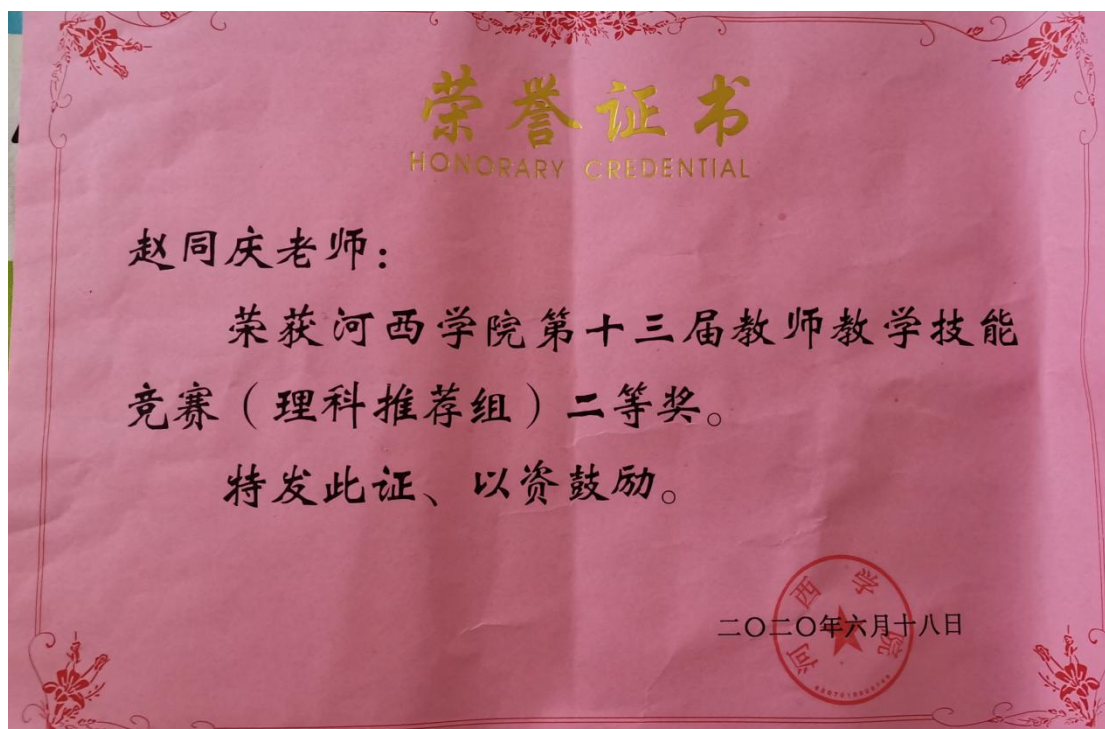 荣誉证书
HONORARY CREDENTIAL
赵同庆老师：
荣获河西学院第十三届教师教学技能
竞赛（理科推荐组）二等奖。
特发此证、以资鼓励。
二〇二〇年六月十八日
河西学院